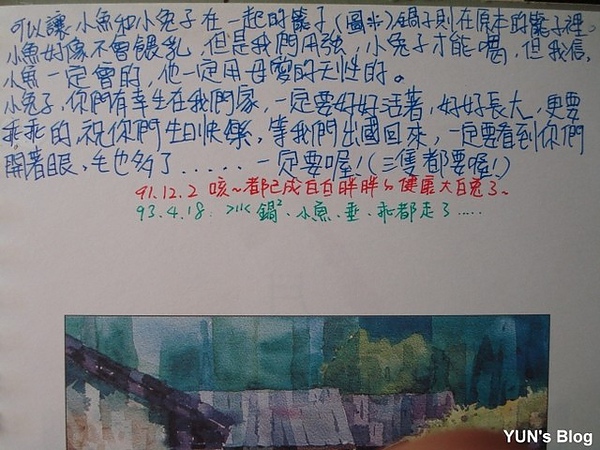 可以讓小魚和小兔子在一起的籠子(圖米)鍋子則在原本的籠子裡。
小魚好像不會餵乳,但是我們用強,小兔子才能喝,但我信,
小魚一定會的,他一定用母愛的天性的。
小兔子,你們有幸生在我們家,一定要好好活著,好好長大,更要
乖乖的,祝你們生日快樂,等我們出國回來,一定要看到你們
開著眼,毛也多了.....一定要喔!(三隻都要喔!)
91.12.2 咳~都已成白白胖胖的健康大白兔了~
93.4.18: 鍋²、小魚、垂、乖都走了.....
YUN's Blog